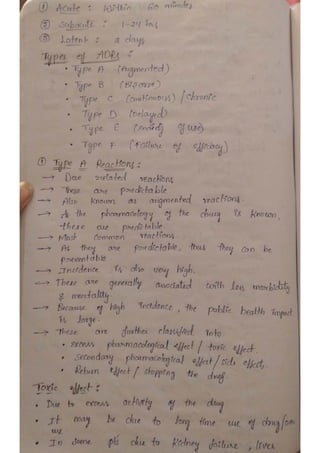 ① Acute : Within 60 minutes
② Subacute : 1-24 hrs
③ Latent : 2 days
Types of ADRs :
• Type A (Augmented)
• Type B (Bizarre)
• Type C (Continuous) / Chronic
• Type D (Delayed)
• Type E (Ending of use)
• Type F (Failure of efficacy)
① Type A Reactions :
→ Dose related reactions
→ These are predictable
→ Also known as augmented reactions.
→ As the pharmacology of the drug is known,
these are predictable.
→ Most common reactions.
→ As they are predictable, thus they can be
preventable
→ Incidence is also very high.
→ These are generally associated with less morbidity
& mortality.
→ Because of high incidence, the public health impact
is large.
→ These are further classified into
• Excess pharmacological effect / toxic effect.
• Secondary pharmacological effect / side effects.
• Return effect / stopping the drug.
Toxic effect :
• Due to excess activity of the drug
• It may be due to long time use of drug/over
use
• In some pts due to kidney failure, liver